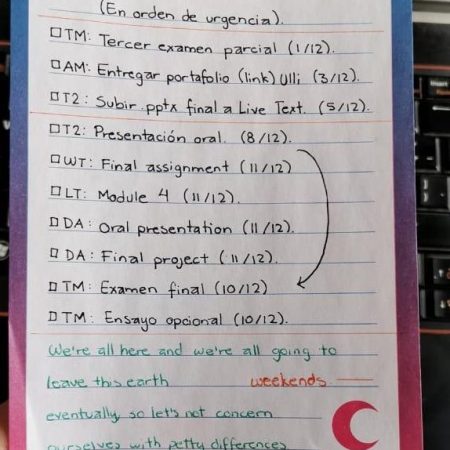 (En orden de urgencia).
TM: Tercer examen parcial (1/12).
AM: Entregar portafolio (link) Ulli (3/12).
T2: Subir pptx final a Live Text. (5/12).
T2: Presentación oral. (8/12).
WT: Final assignment (11/12)
LT: Module 4 (11/12).
DA: Oral presentation (11/12).
DA: Final project (11/12).
TM: Examen final (10/12)
TM: Ensayo opcional (10/12).
We're all here and we're all going to
leave this earth weekends
eventually so let's not concern
ourselves with petty differences